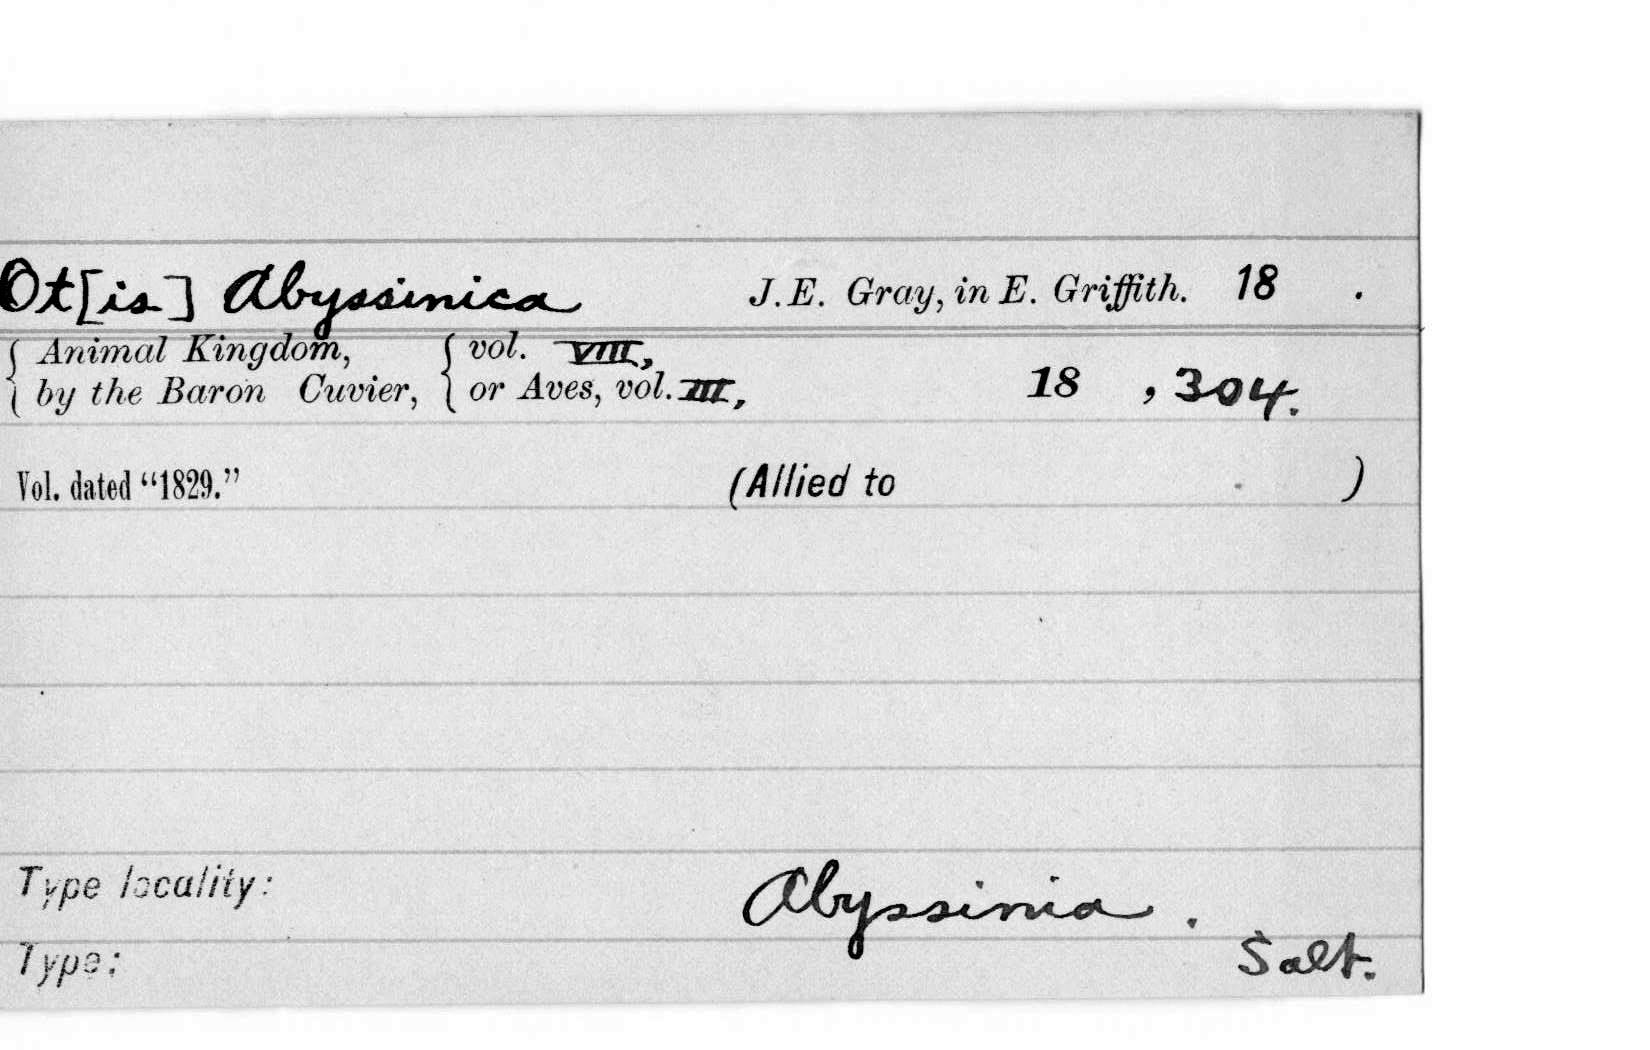 Ot[is] Abyssinica J.E. Gray, in E. Griffith. 18 .
{ Animal Kingdom, { vol. VIII,
{ by the Baron Cuvier, { or Aves, vol. III, 18 , 304.
Vol. dated “1829.” (Allied to )
Type locality: Abyssinia.
Type: Salt.